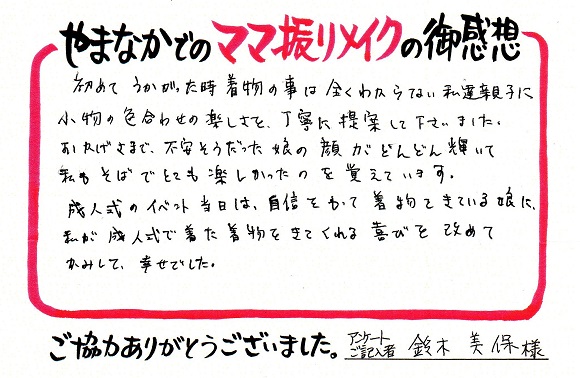 やまなかでのママ振リメイクの御感想
初めて うかがった時 着物の事は 全くわからない 私達親子に
小物の色合わせの楽しさを、丁寧に提案して下さいました。
おかげさまで、不安そうだった 娘の顔が どんどん輝いて
私も そばで とても 楽しかったのを 覚えています。
成人式のイベント当日は、自信をもって 着物をきている娘に、
私が 成人式で着た着物を きてくれる 喜びを 改めて
かみして、幸せでした。
ご協力ありがとうございました。 アンケートご記入者 鈴木 美保様